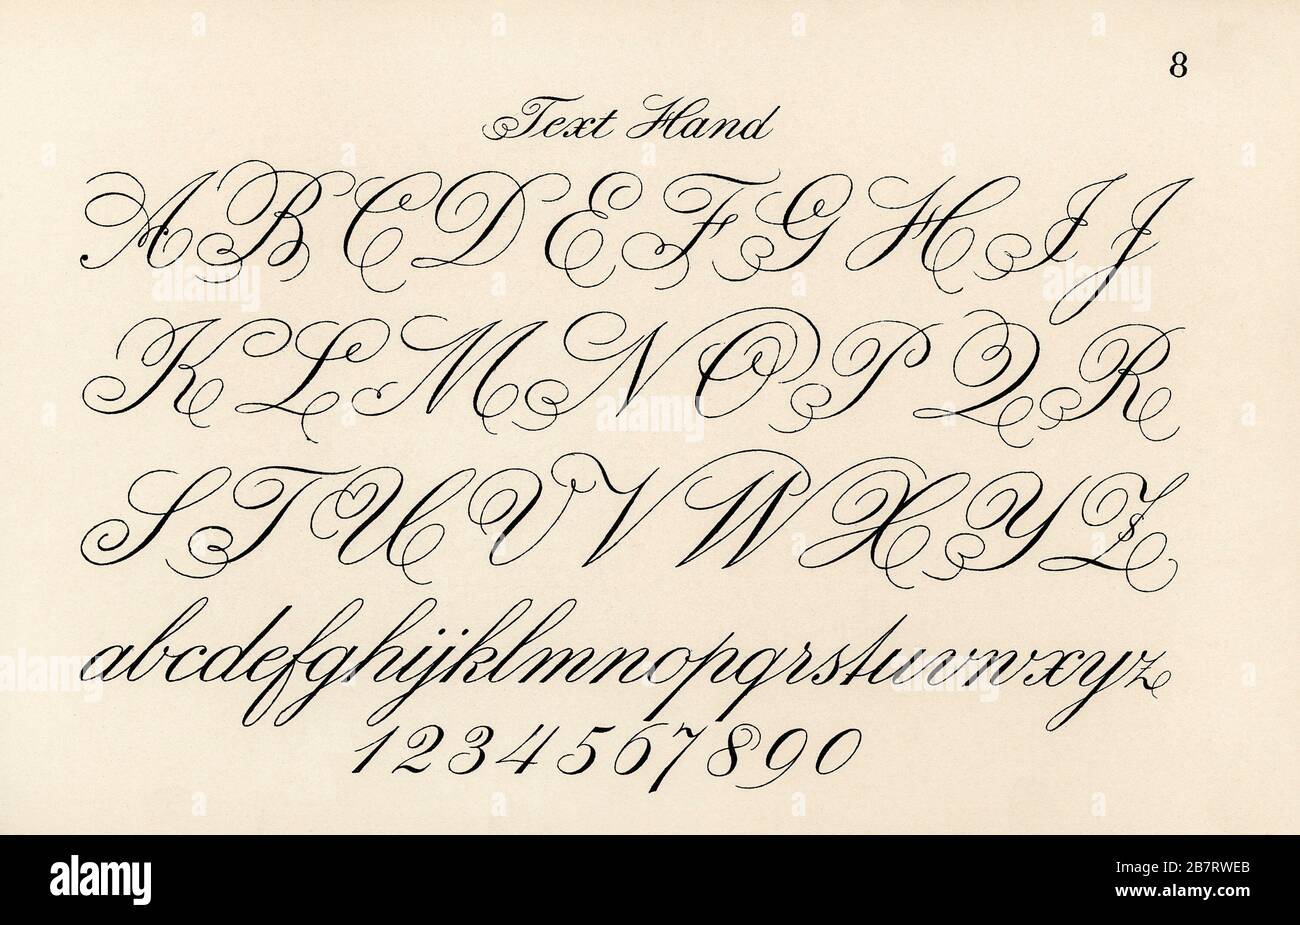 8
Text Hand
A B C D E F G H I J
K L M N O P Q R
S T U V W X Y Z
abcdefghijklmnopqrstuvwxyz
1234567890
alamy
Image ID: 2B7RWEB
www.alamy.com